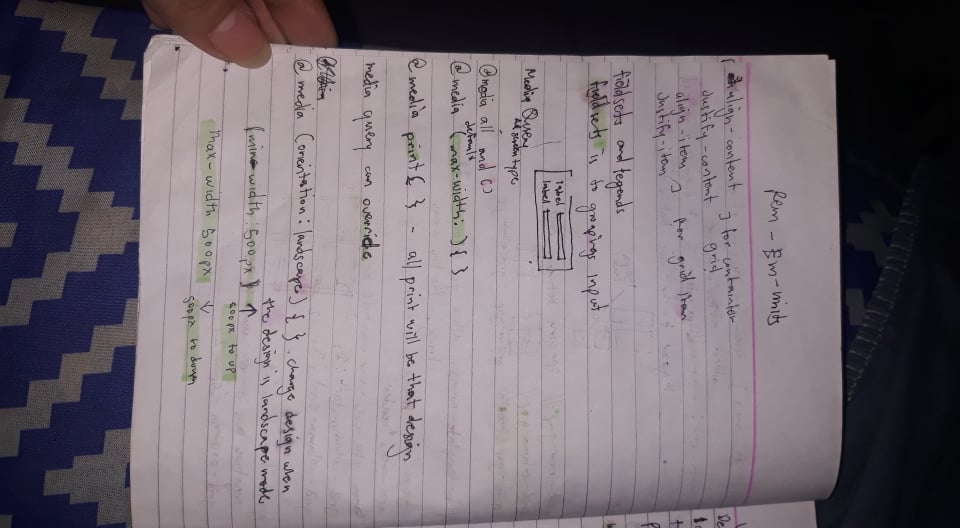 Rem - Em - units
align-content ] for containter
Justify-content grid
align-item ] for grid item
Justify-item
fieldsets and legends
fieldsets is to groupings input
label
label
Media Query
All screen type
@media all and ()
default
@media (max-width: ) { }
@media print { } - all print will be that design
media query can override
@media (orientation: landscape) { } . change design when
the design is landscape mode
(min-width: 500px) ↑
500px to up
max-width 500px ↓
500px to down